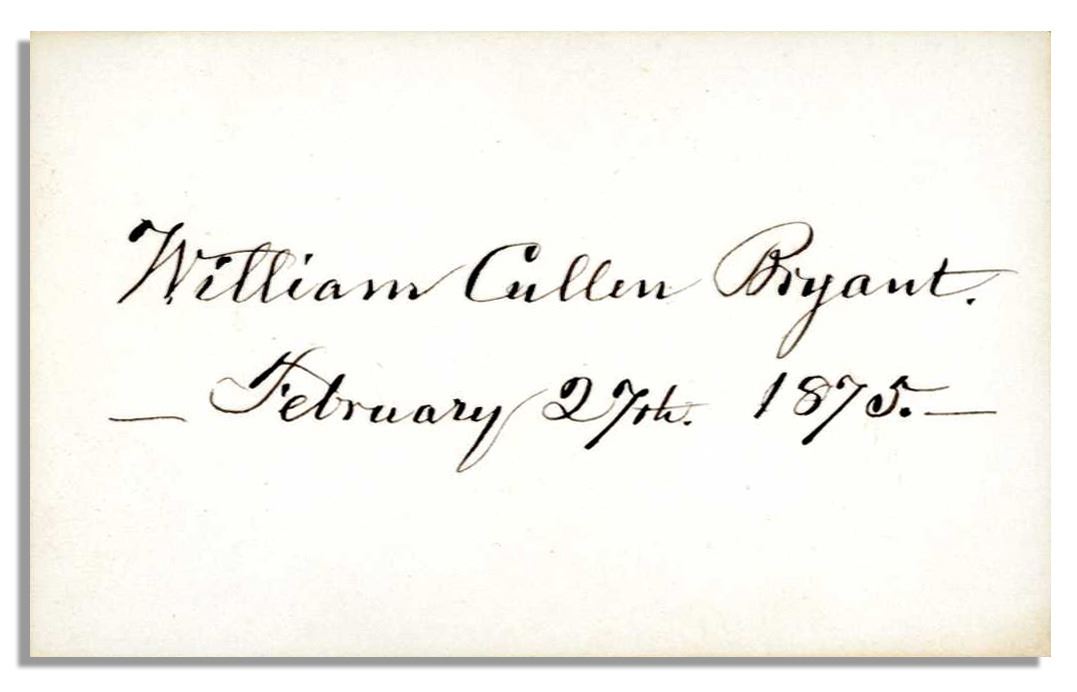 William Cullen Bryant.
— February 27th. 1875. —